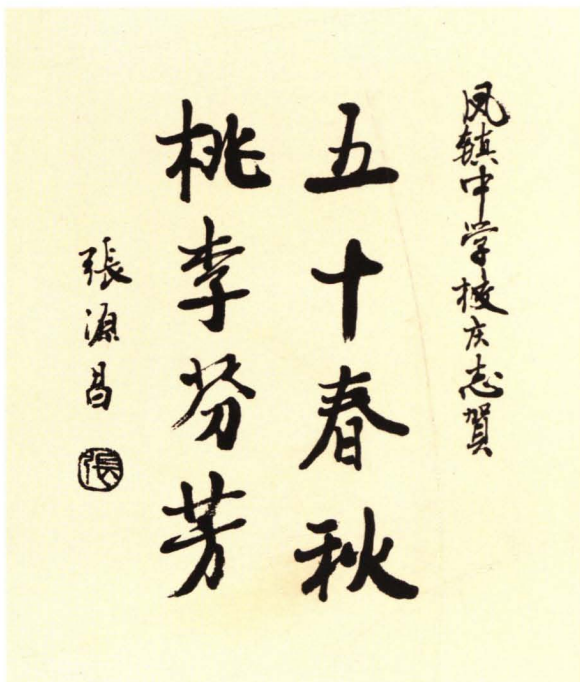 凤镇中学校庆志賀
五十春秋
桃李芬芳
張源昌
張